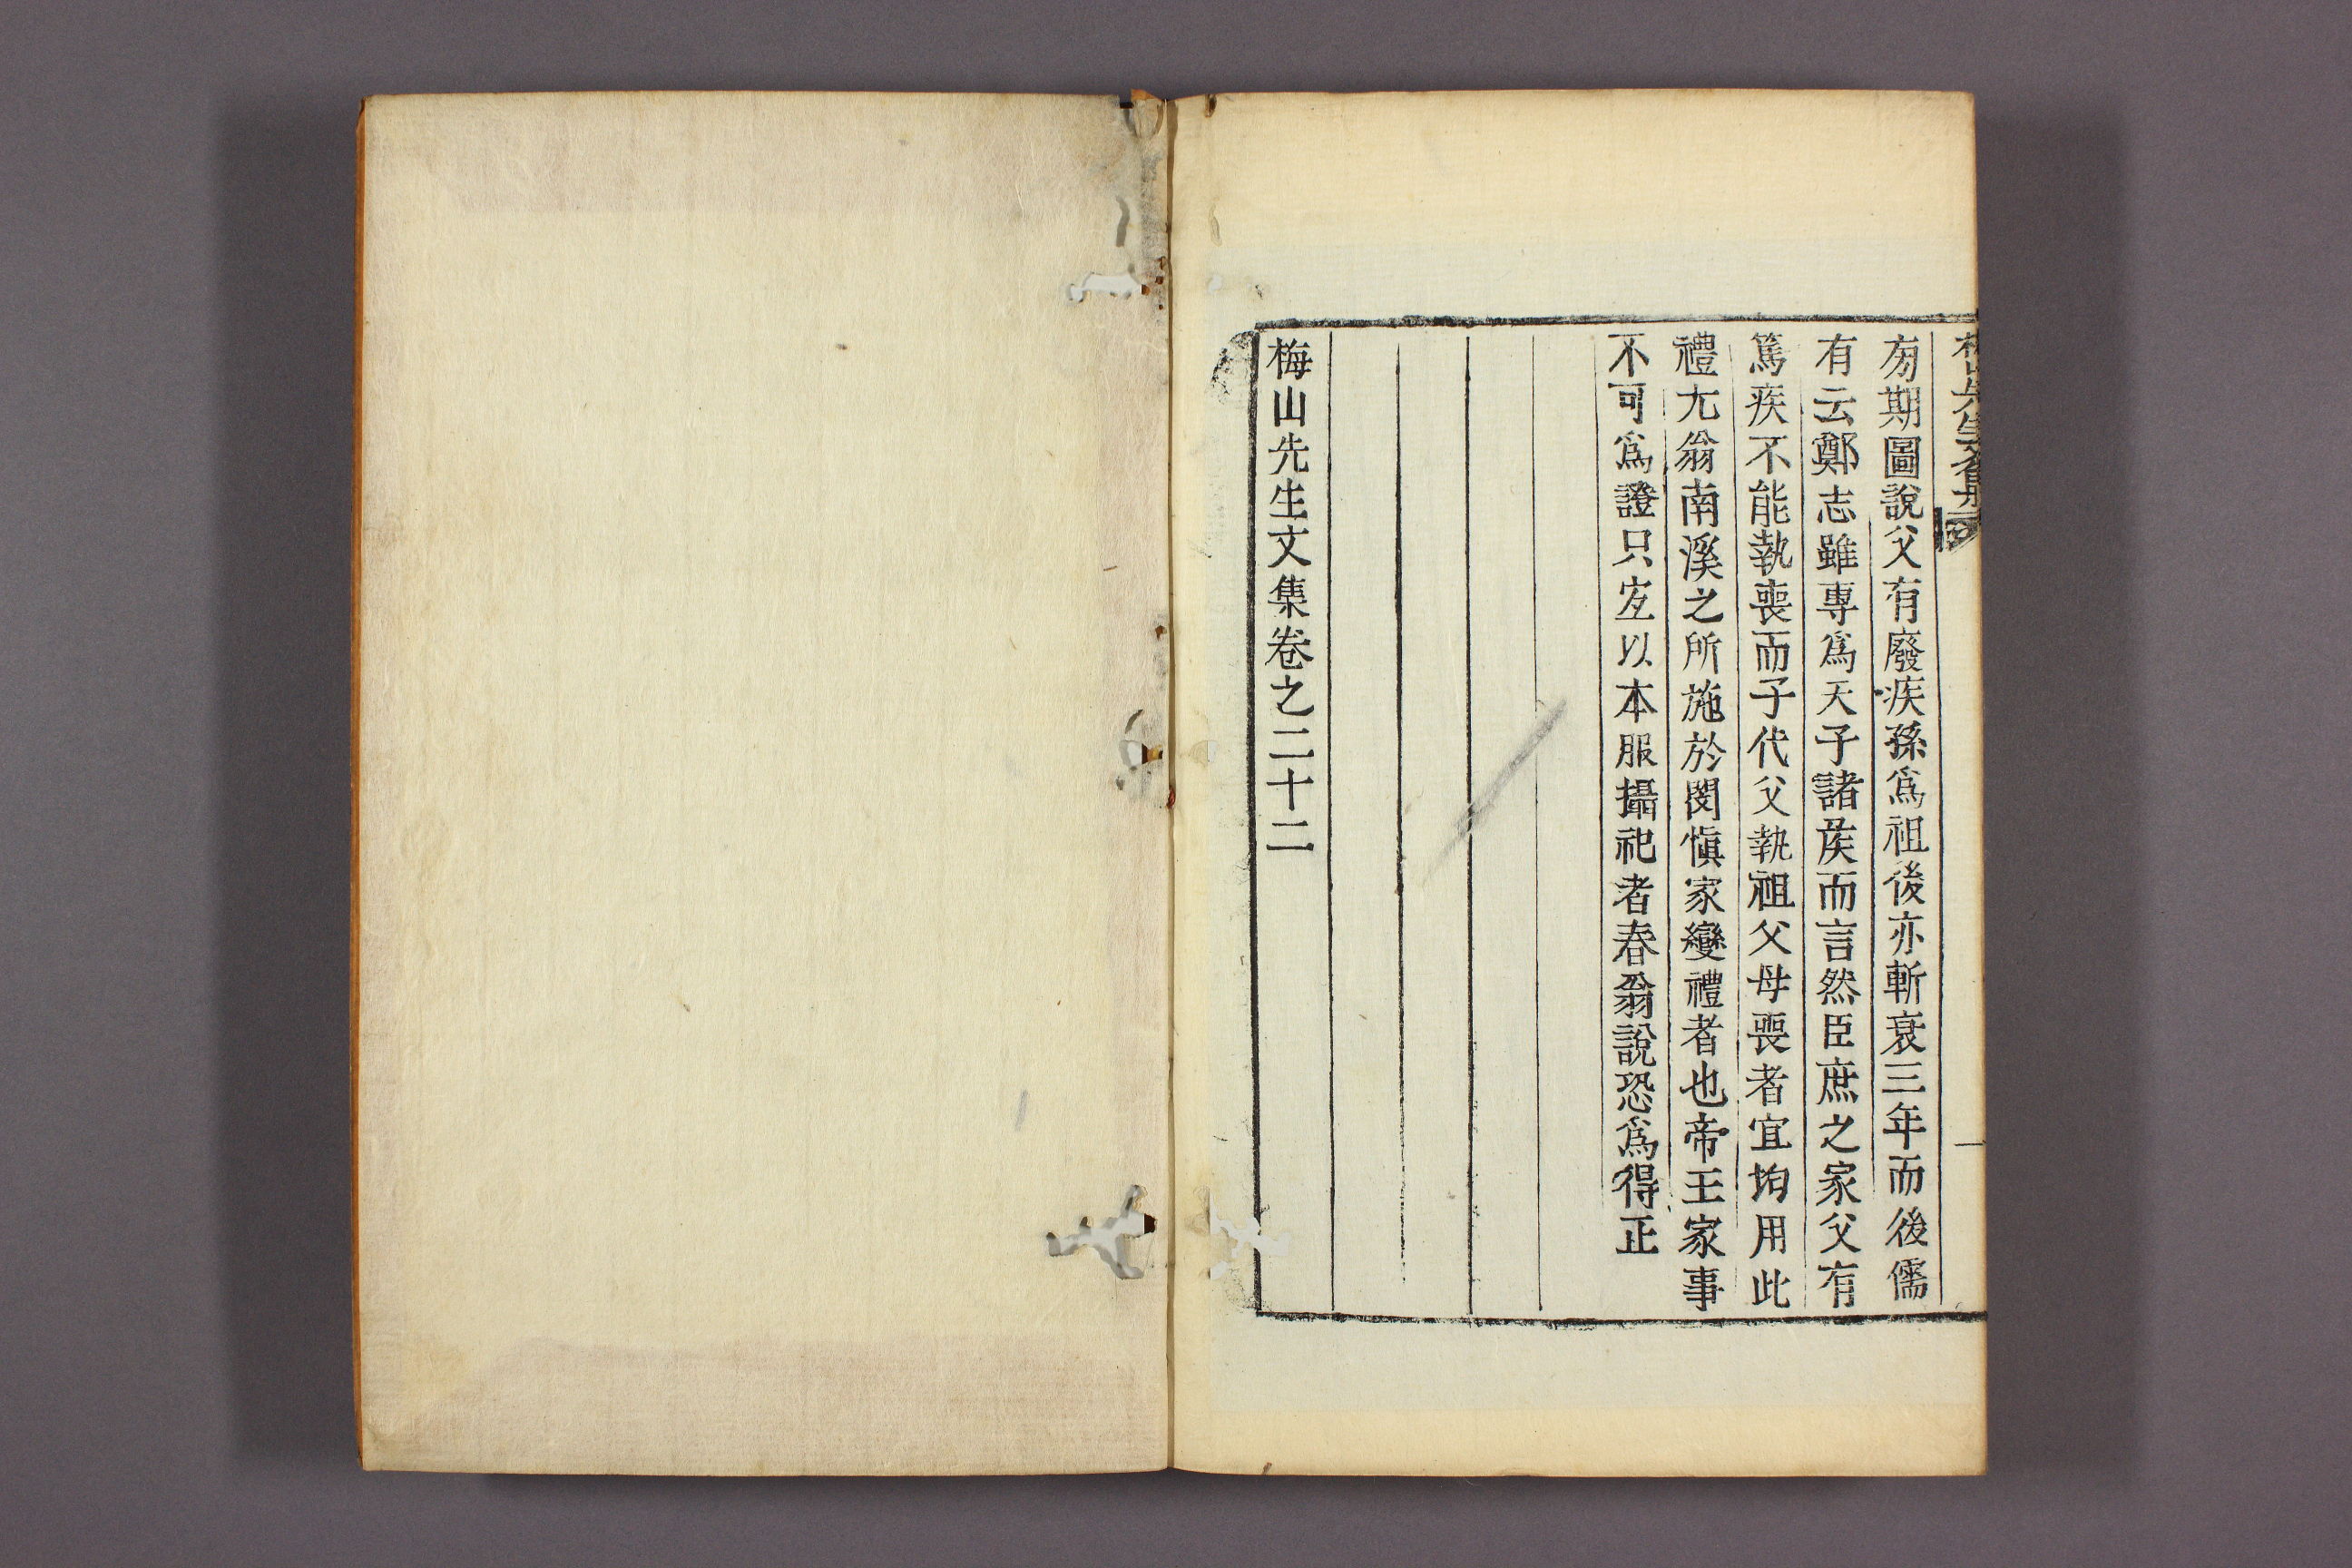 㫄期圖說父有廢疾孫爲祖後亦斬衰三年而後儒
有云鄭志雖專爲天子諸矦而言然臣庶之家父有
篤疾不能執喪而子代父執祖父母喪者宜均用此
禮尤翁南溪之所施於閔愼家變禮者也帝王家事
不可爲證只宐以本服攝祀者春翁說恐爲得正
梅山先生文集卷之二十二